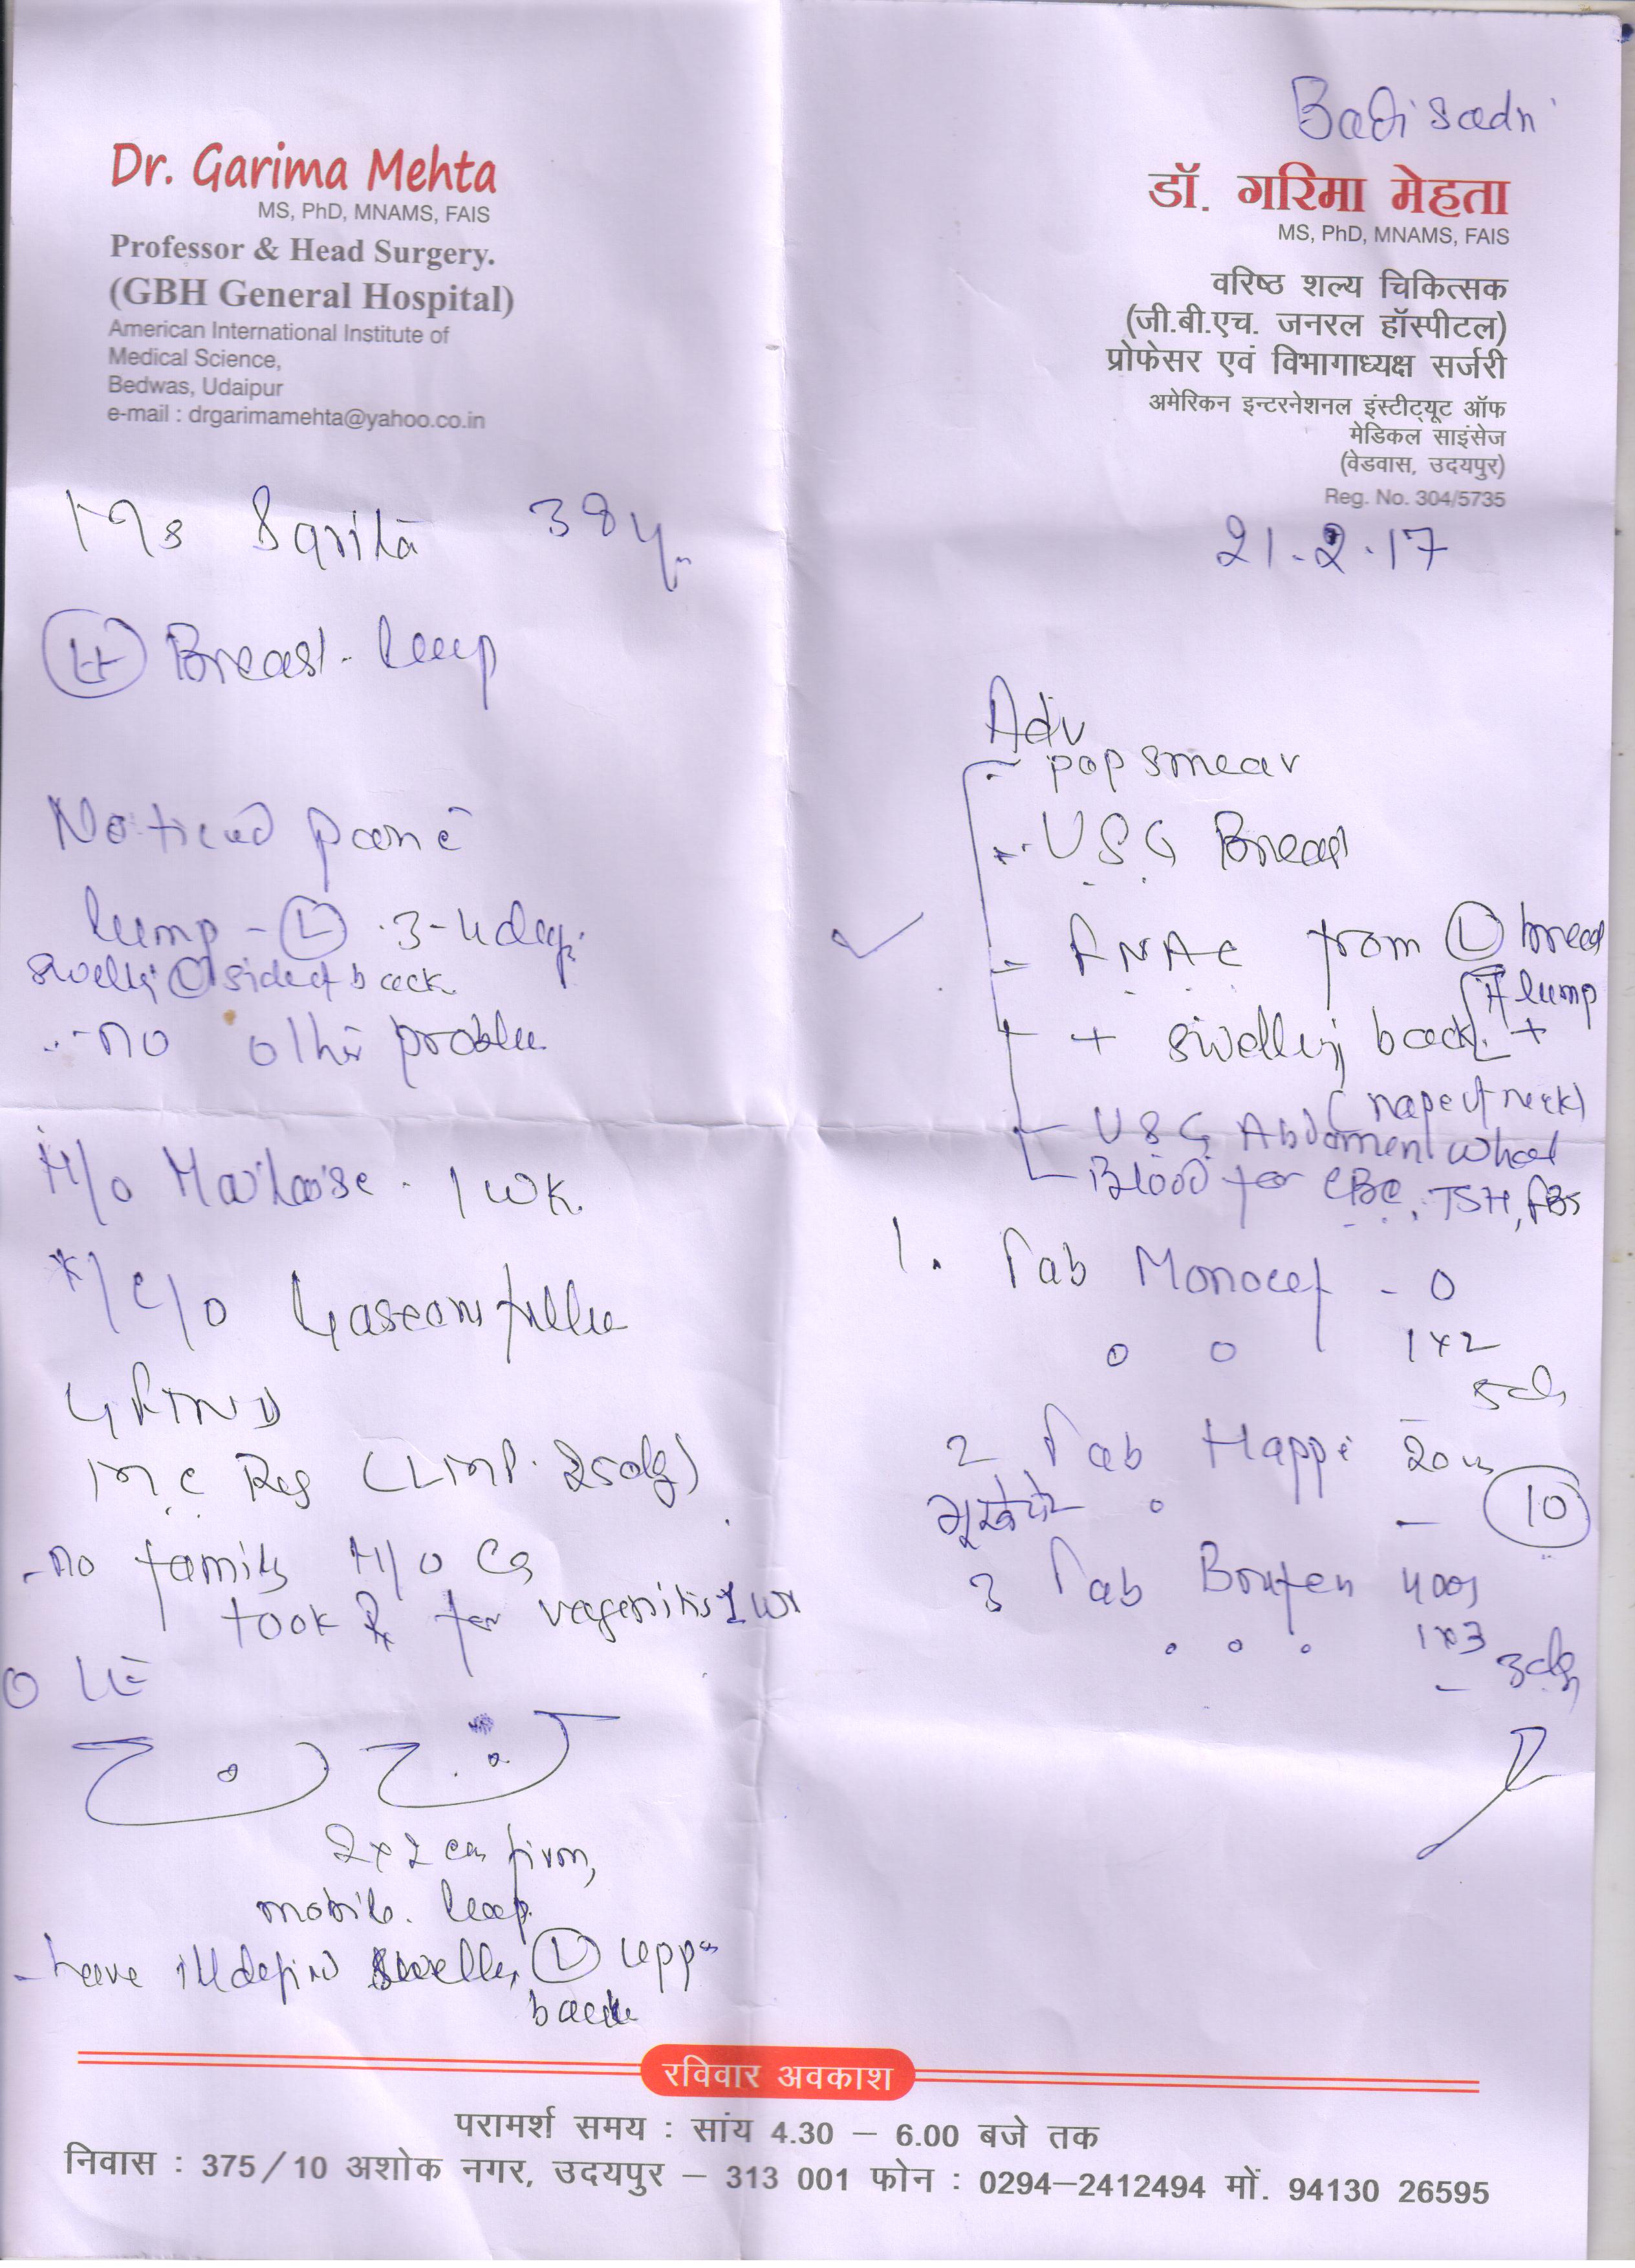 Badi sadri
Dr. Garima Mehta
MS, PhD, MNAMS, FAIS
Professor & Head Surgery.
(GBH General Hospital)
American International Institute of
Medical Science,
Bedwas, Udaipur
e-mail : drgarimamehta@yahoo.co.in
डॉ. गरिमा मेहता
MS, PhD, MNAMS, FAIS
वरिष्ठ शल्य चिकित्सक
(जी.बी.एच. जनरल हॉस्पीटल)
प्रोफेसर एवं विभागाध्यक्ष सर्जरी
अमेरिकन इन्टरनेशनल इंस्टीट्यूट ऑफ
मेडिकल साइंसेज
(वेडवास, उदयपुर)
Reg. No. 304/5735
21.2.17
Ms Sarita 38y
Lt Breast lump
Noticed pain c̄
lump - L 3-4 days
swelling L side of back
- no other problem
H/o Malaise - 1 wk.
LFTND
M.C Reg (LMP. 25 days)
- no family H/o Ca
took Rx for vaginitis 1 wk
O/E
2x2 cm firm,
mobile. lump
- have illdefined swelling L upper
back
Adv
- pap smear
- USG Breast
- FNAC from L breast
lump
+ swelling back +
(nape of neck)
- USG Abdomen whole
- Blood for CBC, TSH, FBS
1. Tab Monocef - O
1x2
5 days
2 Tab Happi 20
भूखे पेट 10
3 Tab Brufen 400
1x3
- 3 days
रविवार अवकाश
परामर्श समय : सांय 4.30 – 6.00 बजे तक
निवास : 375/10 अशोक नगर, उदयपुर – 313 001 फोन : 0294–2412494 मों. 94130 26595